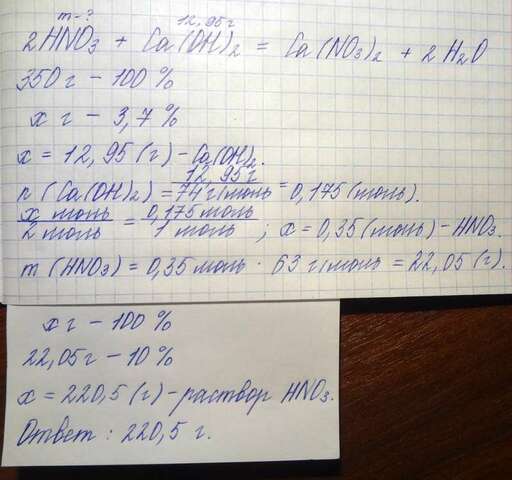 m-? 12,95г
2HNO3 + Ca(OH)2 = Ca(NO3)2 + 2H2O
350г - 100%
x г - 3,7%
x = 12,95 (г) - Ca(OH)2.
n (Ca(OH)2) = 12,95г / 74г/моль = 0,175 (моль).
x моль / 2 моль = 0,175 моль / 1 моль ; x = 0,35 (моль) - HNO3.
m (HNO3) = 0,35 моль · 63 г/моль = 22,05 (г).
x г - 100%
22,05г - 10%
x = 220,5 (г) - раствор HNO3.
Ответ: 220,5 г.